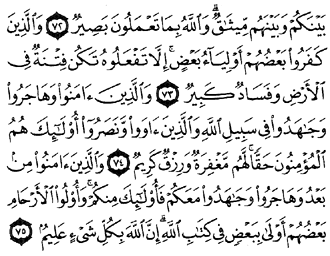 بَيْنَكُمْ وَبَيْنَهُم مِّيثَٰقٌ ۗ وَٱللَّهُ بِمَا تَعْمَلُونَ بَصِيرٌ ٧٢ وَٱلَّذِينَ
كَفَرُوا۟ بَعْضُهُمْ أَوْلِيَآءُ بَعْضٍ ۚ إِلَّا تَفْعَلُوهُ تَكُن فِتْنَةٌ فِى
ٱلْأَرْضِ وَفَسَادٌ كَبِيرٌ ٧٣ وَٱلَّذِينَ ءَامَنُوا۟ وَهَاجَرُوا۟
وَجَٰهَدُوا۟ فِى سَبِيلِ ٱللَّهِ وَٱلَّذِينَ ءَاوَوا۟ وَّنَصَرُوٓا۟ أُو۟لَٰٓئِكَ هُمُ
ٱلْمُؤْمِنُونَ حَقًّا ۚ لَّهُم مَّغْفِرَةٌ وَرِزْقٌ كَرِيمٌ ٧٤ وَٱلَّذِينَ ءَامَنُوا۟ مِنۢ
بَعْدُ وَهَاجَرُوا۟ وَجَٰهَدُوا۟ مَعَكُمْ فَأُو۟لَٰٓئِكَ مِنكُمْ ۚ وَأُو۟لُوا۟ ٱلْأَرْحَامِ
بَعْضُهُمْ أَوْلَىٰ بِبَعْضٍ فِى كِتَٰبِ ٱللَّهِ ۗ إِنَّ ٱللَّهَ بِكُلِّ شَىْءٍ عَلِيمٌۢ ٧٥